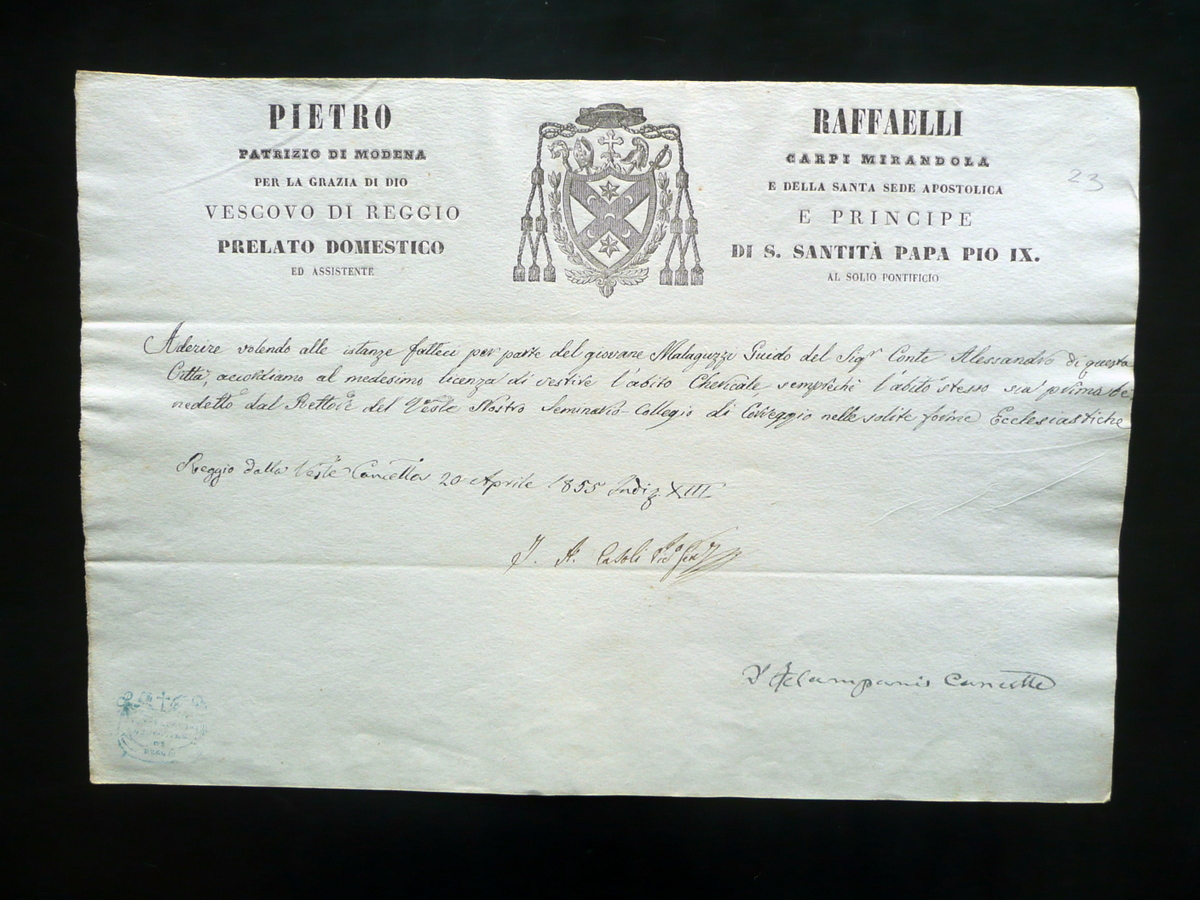 PIETRO RAFFAELLI
PATRIZIO DI MODENA CARPI MIRANDOLA
PER LA GRAZIA DI DIO E DELLA SANTA SEDE APOSTOLICA
VESCOVO DI REGGIO E PRINCIPE
PRELATO DOMESTICO DI S. SANTITÀ PAPA PIO IX.
ED ASSISTENTE AL SOLIO PONTIFICIO
23
Aderire volendo alle istanze fatteci per parte del giovane Malaguzzi Guido del Sigr Conte Alessandro di questa
Città, accordiamo al medesimo licenza di vestire l'abito Chericale, sempreché l'abito stesso sia prima be
nedetto dal Rettore del Vesle Nostro Seminario-Collegio di Correggio nelle solite forme Ecclesiastiche
Reggio dalla Vesle Cancella 20 Aprile 1855 Indiz. XIII
Casoli
REGGIO